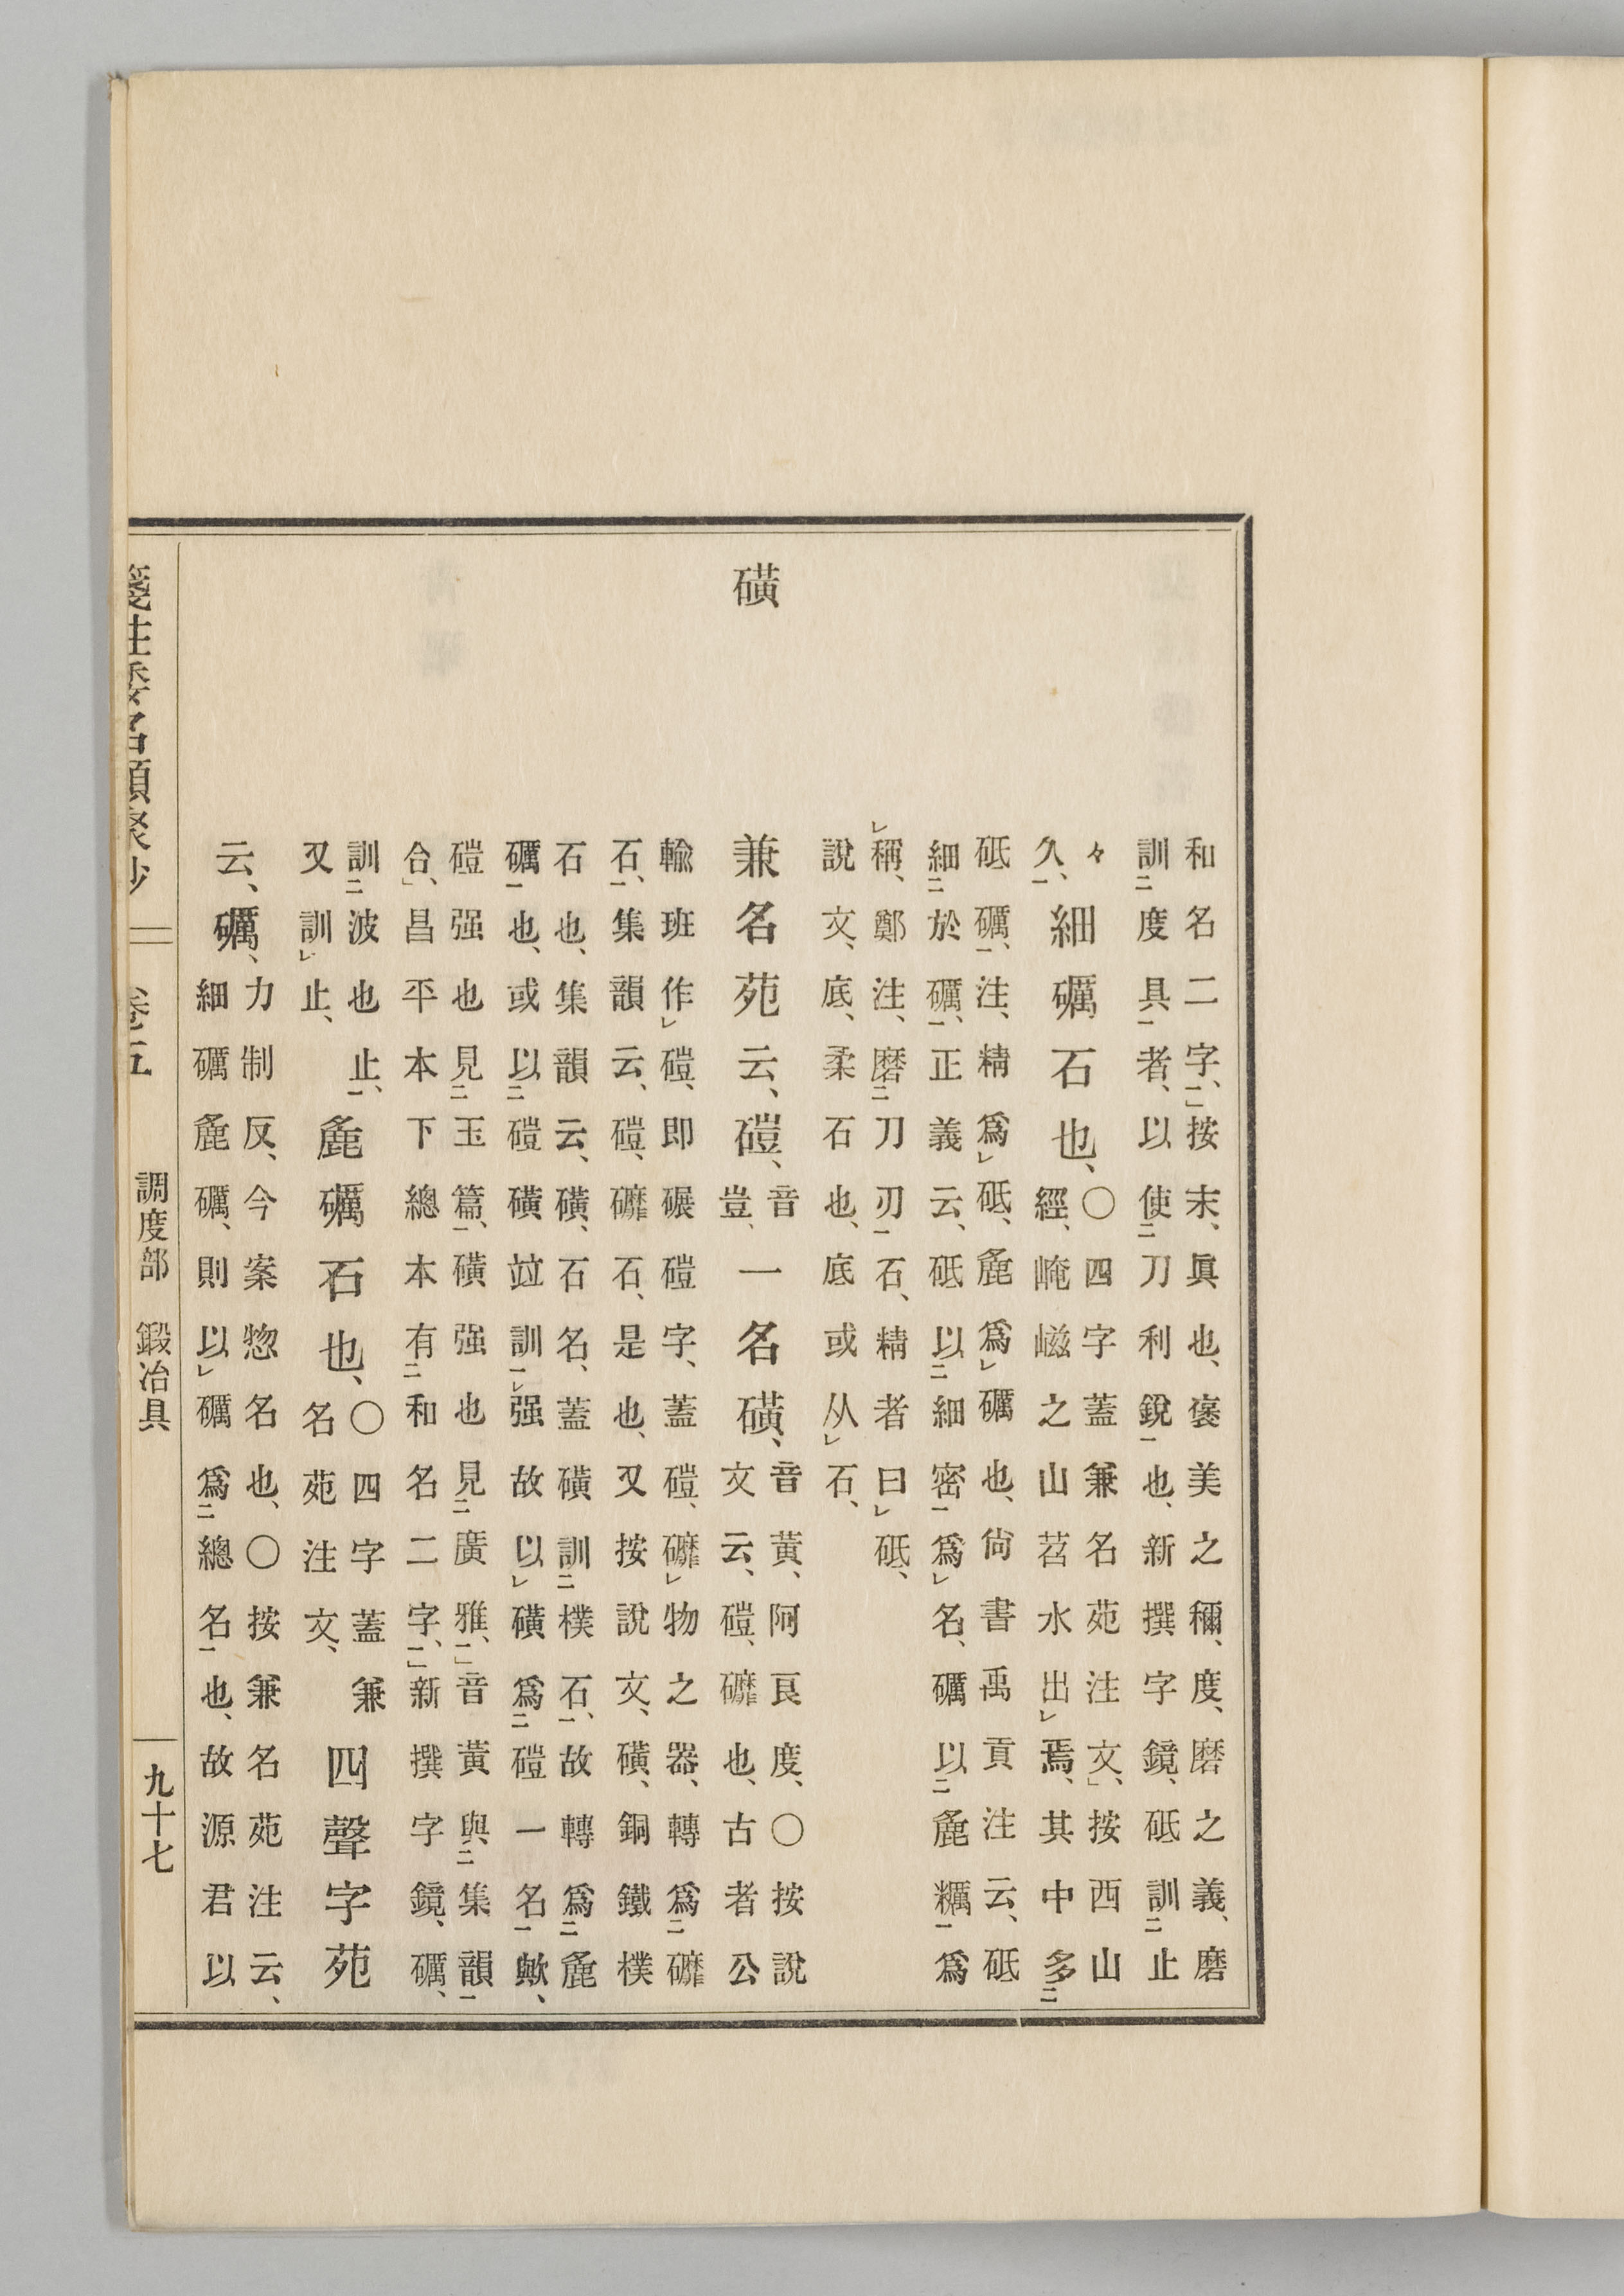 和名二字、」按末、眞也、褒美之稱、度、磨之義、磨
訓度具者、以使刀利銳也、新撰字鏡、砥訓止
々
久、
細礪石也、
○四字蓋兼名苑注文、」按西山
經、崦嵫之山苕水出焉、其中多
砥礪、注、精爲砥、麁爲礪也、尙書禹貢注云、砥
細於礪、正義云、砥以細密爲名、礪以麁糲爲
稱、鄭注、磨刀刃石、精者曰砥、
說文、底、柔石也、底或从石、
磺
兼名苑云、磑、
音
豈、
一名磺、
音黃、阿良度、○按說
文云、磑、䃺也、古者公
輸班作磑、即碾磑字、蓋磑、䃺物之器、轉爲䃺
石、集韻云、磑、䃺石、是也、又按說文、磺、銅鐵樸
石也、集韻云、磺、石名、蓋磺訓樸石、故轉爲麁
礪也、或以磑磺竝訓强故以磺爲磑一名歟、
磑强也見玉篇、磺强也見廣雅、」音黃與集韻
合、」昌平本下總本有和名二字、」新撰字鏡、礪、
訓波也止、
又訓止、
麁礪石也、
○四字蓋兼
名苑注文、
四聲字苑
云、礪、
力制反、今案惣名也、○按兼名苑注云、
細礪麁礪、則以礪爲總名也、故源君以
箋注倭名類聚抄 卷五 調度部 鍛冶具 九十七